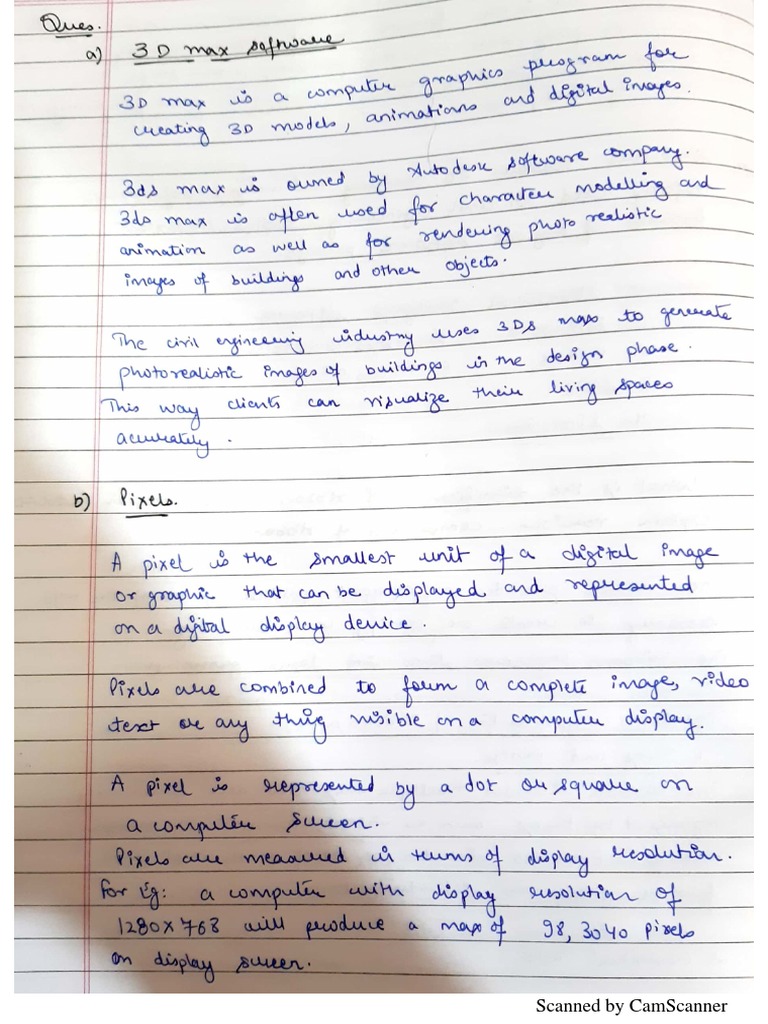 Ques.
a) 3D max software
3D max is a computer graphics program for
creating 3D models, animations and digital images.
3ds max is owned by Autodesk software company.
3ds max is often used for character modelling and
animation as well as for rendering photo realistic
images of buildings and other objects.
The civil engineering industry uses 3Ds max to generate
photorealistic images of buildings in the design phase.
This way clients can visualize their living spaces
accurately.
b) Pixels.
A pixel is the smallest unit of a digital image
or graphic that can be displayed and represented
on a digital display device.
Pixels are combined to form a complete image, video
text or any thing visible on a computer display.
A pixel is represented by a dot or square on
a computer screen.
Pixels are measured in terms of display resolution.
For Eg: a computer with display resolution of
1280x768 will produce a max of 98,3040 pixels
on display screen.
Scanned by CamScanner